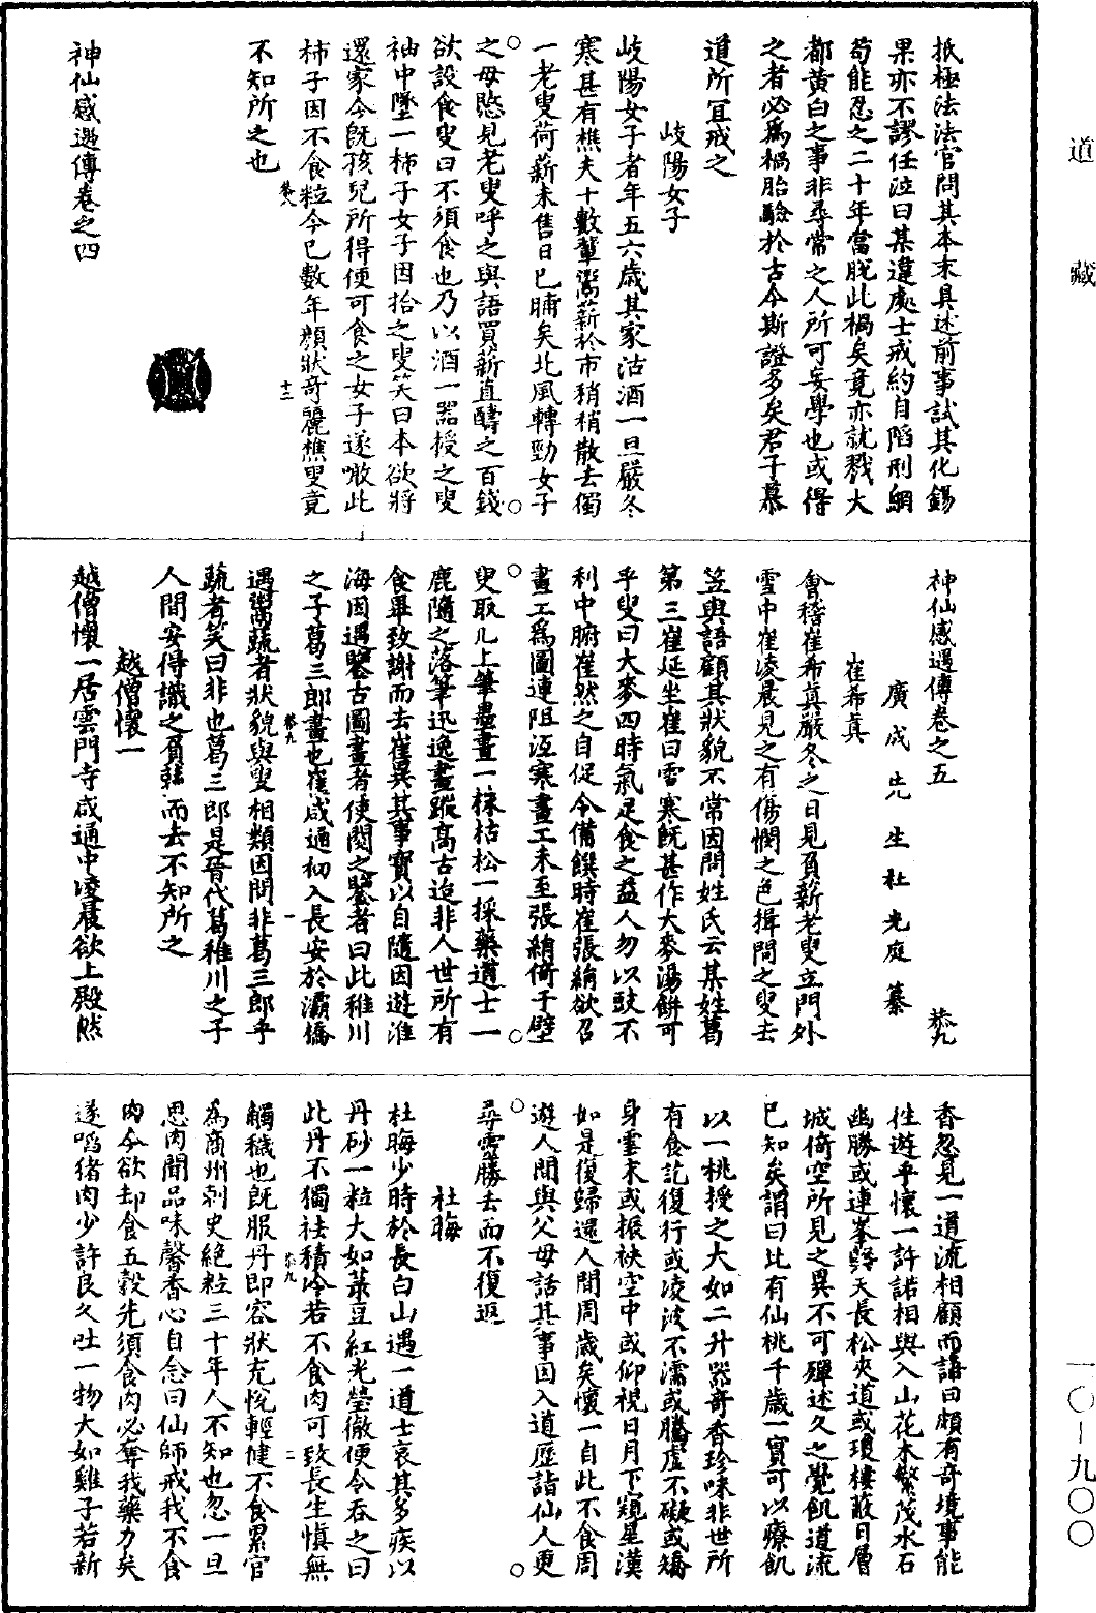 道藏
一〇—九〇〇
抵極法法官問其本末具述前事試其化錫
果亦不謬任泣曰某違處士戒約自陷刑網
苟能忍之二十年當脫此禍矣竟亦就戮大
都黃白之事非尋常之人所可妄學也或得
之者必為禍胎驗於古今斯證多矣君子慕
道所宜戒之
岐陽女子
岐陽女子者年五六歲其家沽酒一旦嚴冬
寒甚有樵夫十數輩鬻薪於市稍稍散去獨
一老叟荷薪未售日已晡矣北風轉勁女子
之母愍見老叟呼之與語買薪直醻之百錢
欲設食叟曰不須食也乃以酒一器授之叟
袖中墜一柿子女子因拾之叟笑曰本欲將
還家今既孩兒所得便可食之女子遂噉此
柿子因不食粒今已數年顏狀奇麗樵叟竟
恭八 十三
不知所之也
神仙感遇傳卷之四
神仙感遇傳卷之五 恭九
廣成先生杜光庭纂
崔希真
會稽崔希真嚴冬之日見負薪老叟立門外
雪中崔凌晨見之有傷憫之色揖問之叟去
笠與語顧其狀貌不常因問姓氏云某姓葛
第三崔延坐崔曰雪寒既甚作大麥湯餅可
乎叟曰大麥四時氣足食之益人勿以豉不
利中腑崔然之自促令備饌時崔張絹欲召
畫工為圖連阻沍寒畫工未至張絹倚于壁
叟取几上筆墨畫一株枯松一採藥道士一
鹿隨之落筆迅逸畫蹤高古迨非人世所有
食畢致謝而去崔異其事寶以自隨因遊淮
海因遇鑒古圖畫者使閱之鑒者曰此稚川
之子葛三郎畫也崔咸通初入長安於灞橋
恭九 一
遇鬻蔬者狀貌與叟相類因問非葛三郎乎
蔬者笑曰非也葛三郎是晉代葛稚川之子
人間安得識之負蔬而去不知所之
越僧懷一
越僧懷一居雲門寺咸通中凌晨欲上殿然
香忽見一道流相顧而語曰頗有奇境事能
往遊乎懷一許諾相與入山花木繁茂水石
幽勝或連峯跨天長松夾道或瓊樓蔽日層
城倚空所見之異不可殫述久之覺飢道流
已知矣謂曰此有仙桃千歲一實可以療飢
以一桃授之大如二升器奇香珍味非世所
有食訖復行或凌波不濡或騰虛不礙或矯
身雲末或振袂空中或仰視日月下窺星漢
如是復歸還人間周歲矣懷一自此不食周
遊人間與父母話其事因入道歷詣仙人更
尋靈勝去而不復返
杜晦
杜晦少時於長白山遇一道士哀其多疾以
丹砂一粒大如菉豆紅光瑩徹便令吞之曰
此丹不獨祛積冷若不食肉可致長生慎無
恭九 二
觸穢也既服丹即容狀充悅輕健不食累官
為商州刺史絕粒三十年人不知也忽一旦
思肉聞品味馨香心自念曰仙師戒我不食
肉今欲却食五穀先須食肉必奪我藥力矣
遂啗猪肉少許良久吐一物大如雞子若新